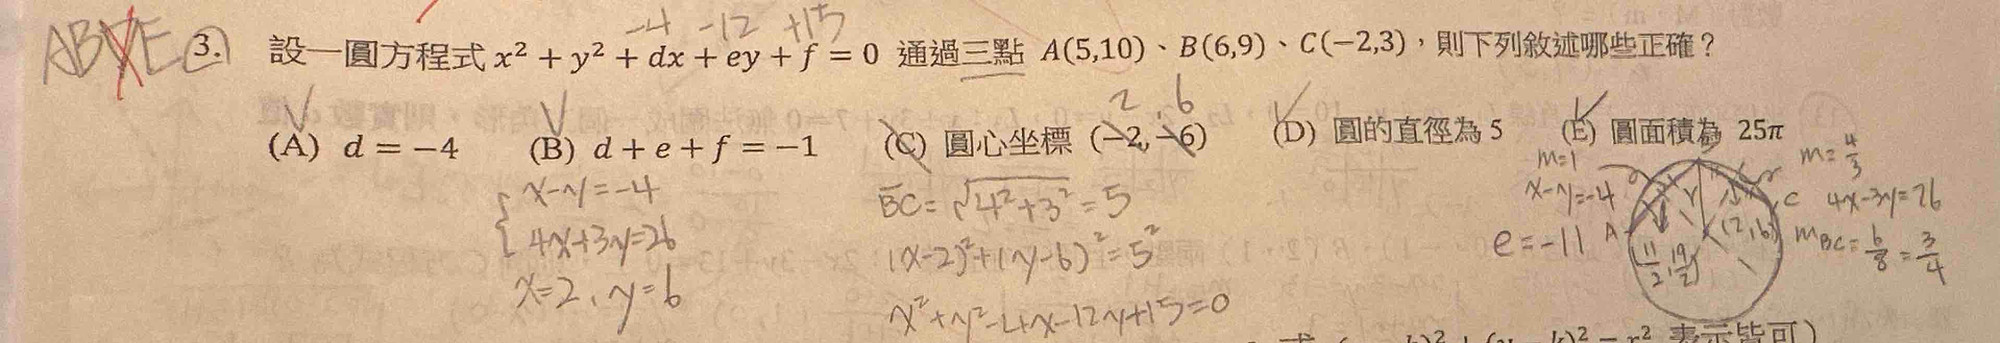 ABDE 3. 設一圓方程式 x² + y² + dx + ey + f = 0 通過三點 A(5,10)、B(6,9)、C(−2,3)，則下列敘述哪些正確？
-4 -12 +15
2 , 6
(A) d = −4 (B) d + e + f = −1 (C) 圓心坐標 (−2,−6) (D) 圓的直徑為 5 (E) 圓面積為 25π
x-y=-4
4x+3y=26
x=2、y=6
BC = √4²+3² = 5
(x-2)²+(y-6)²=5²
x²+y²-4x-12y+15=0
m=1
x-y=-4
e=-11
A
C
(2,6)
m=4/3
4x-3y=26
mBC=6/8=3/4